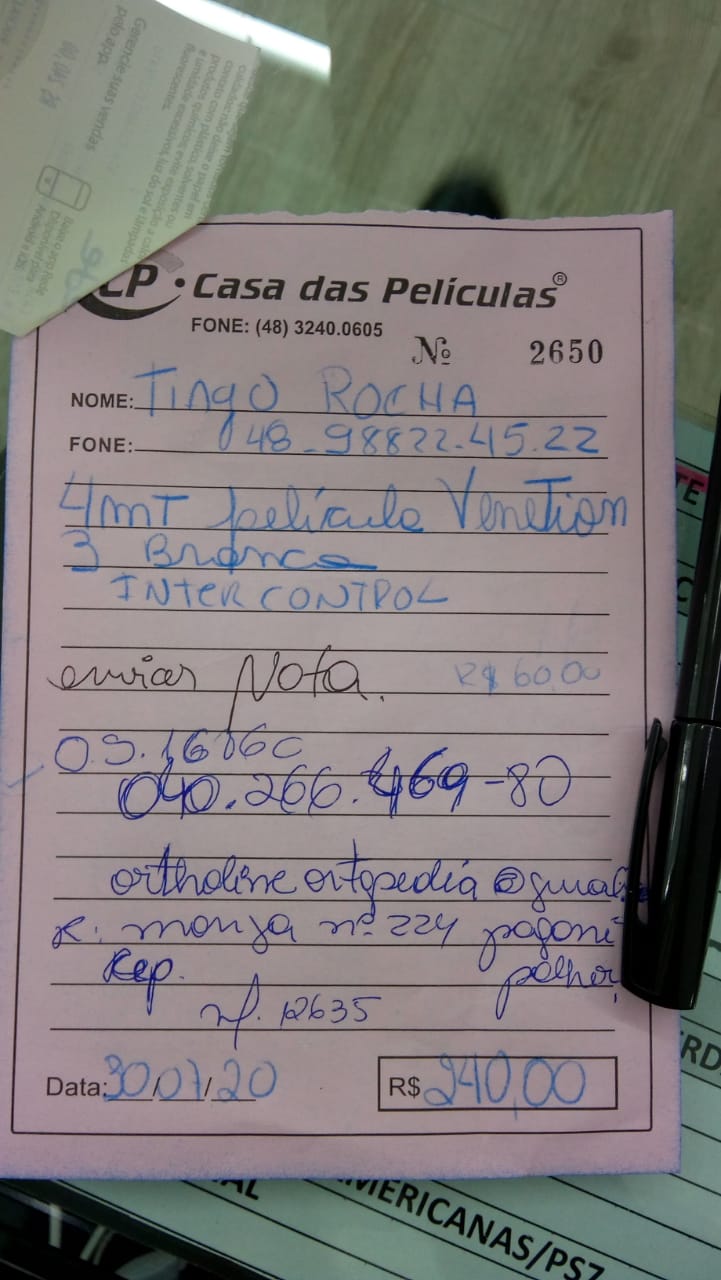 Gerencie suas vendas
pelo app.
CP • Casa das Películas®
FONE: (48) 3240.0605
Nº 2650
NOME: Tiago ROCHA
FONE: 48-98822-45.22
4mT película Venetian
3 Branca
INTERCONTROL
enviar Nota. R$ 60,00
O.S.
040.266.469-80
ortholine ortopedia @gmail
R: monza nº 224 pagani
Rep. palhoç
nf. 12635
Data: 30/07/20 R$ 240,00
AMERICANAS/PSZ